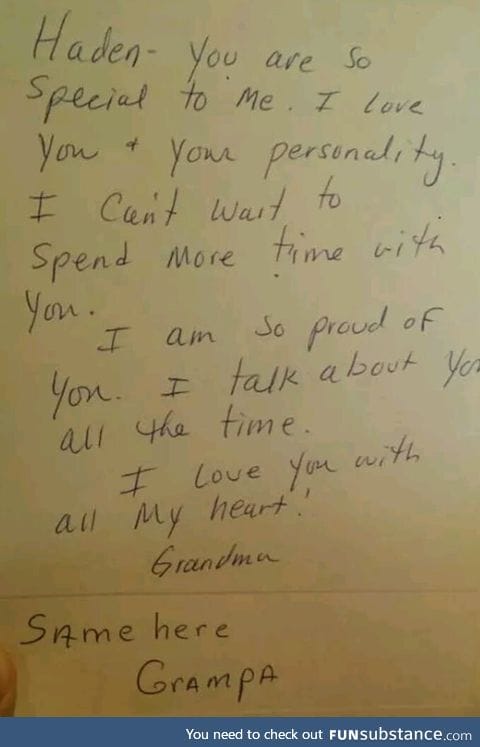 Haden- You are so
special to me. I love
you + your personality.
I can't wait to
spend more time with
you.
I am so proud of
you. I talk about you
all the time.
I love you with
all my heart!
Grandma
Same here
Grampa
You need to check out FUNsubstance.com